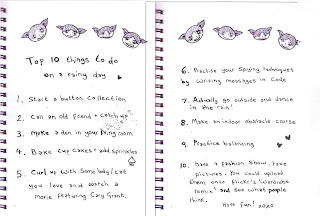 Top 10 things to do
on a rainy day
1. Start a button collection
2. Call an old friend + catch up
3. make a den in your living room
4. Bake cup cakes + add sprinkles
5. Curl up with somebody/cat
you love and watch a
movie featuring Cary Grant.
6. Practise your spying techniques
by writing messages in code
7. Actually go outside and dance
in the rain!
8. Make an indoor obstacle course
9. Practice balancing
10. have a fashion show, take
pictures. You could upload
them onto flickr's 'wardrobe
remix' and see what people
think.
Have fun! xoxo